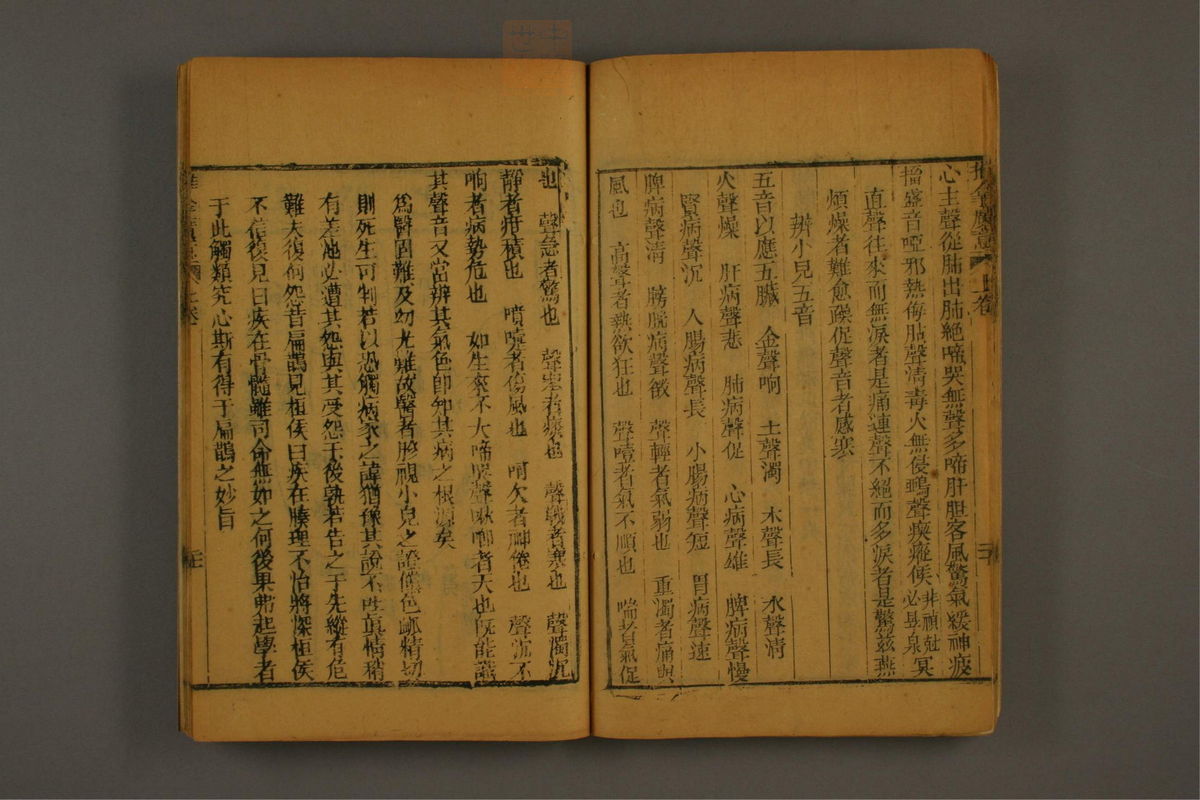 心主聲從肺出肺絕啼哭無聲多啼肝胆客風驚氣緩神疲
聲音啞邪熱侮肺聲清毒火無侵鴉聲瘈瘲候非禎尅必昃泉冥
直聲往來而無淚者是痛連聲不絕而多淚者是驚玆燕
煩燥者難愈躁促聲音者感寒
辨小兒五音
五音以應五臟 金聲响 土聲濁 木聲長 水聲清
火聲燥 肝病聲悲 肺病聲促 心病聲雄 脾病聲慢
腎病聲沉 大腸病聲長 小腸病聲短 胃病聲速
脾病聲清 膀胱病聲微 聲輕者氣弱也 重濁者痛與
風也 高聲者熱欲狂也 聲噎者氣不順也 喘者氣促
也 聲急者驚也 聲者痰也 聲戰者寒也 聲濁沉
靜者疳積也 噴嚏者傷風也 呵欠者神倦也 聲沉不
响者病勢危也 如生來不大啼哭聲啾唧者夭也既能識
其聲音又當辨其氣色卽知其病之根源矣
爲醫固難及幼尤難故醫者胗視小兒之證儘色脈精切
則死生可判若以恐觸病家之諱猶豫其說不吐眞情稍
有差池必遭其怨與其受怨于後孰若告之于先縱有危
難夫復何怨昔扁鵲見桓侯曰疾在腠理不怡將深桓侯
不信復見曰疾在骨髓雖司命無如之何後果弗起學者
于此觸類究心斯有得于扁鵲之妙旨